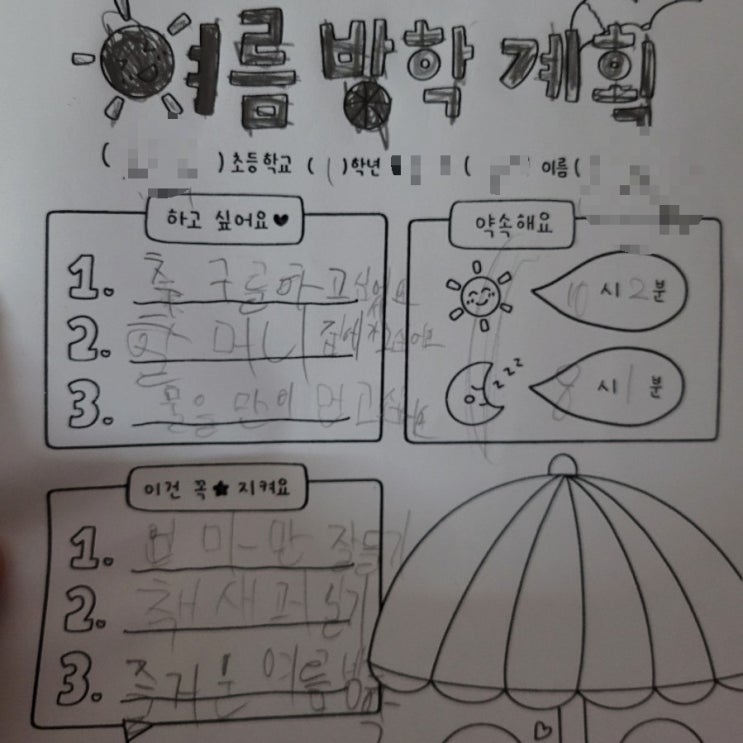 여름 방학 계획
( ) 초등학교 ( 1 )학년 ( 이름 (
하고 싶어요♥
1. 축구를하고싶어요
2. 할머니 집에 가고싶어요
3. 물을 만이 먹고싶어요
약속해요
10시 2분
zzz
8시 1분
이건 꼭★지켜요
1. 말 잘듣기
2.
3. 즐거운 여름방